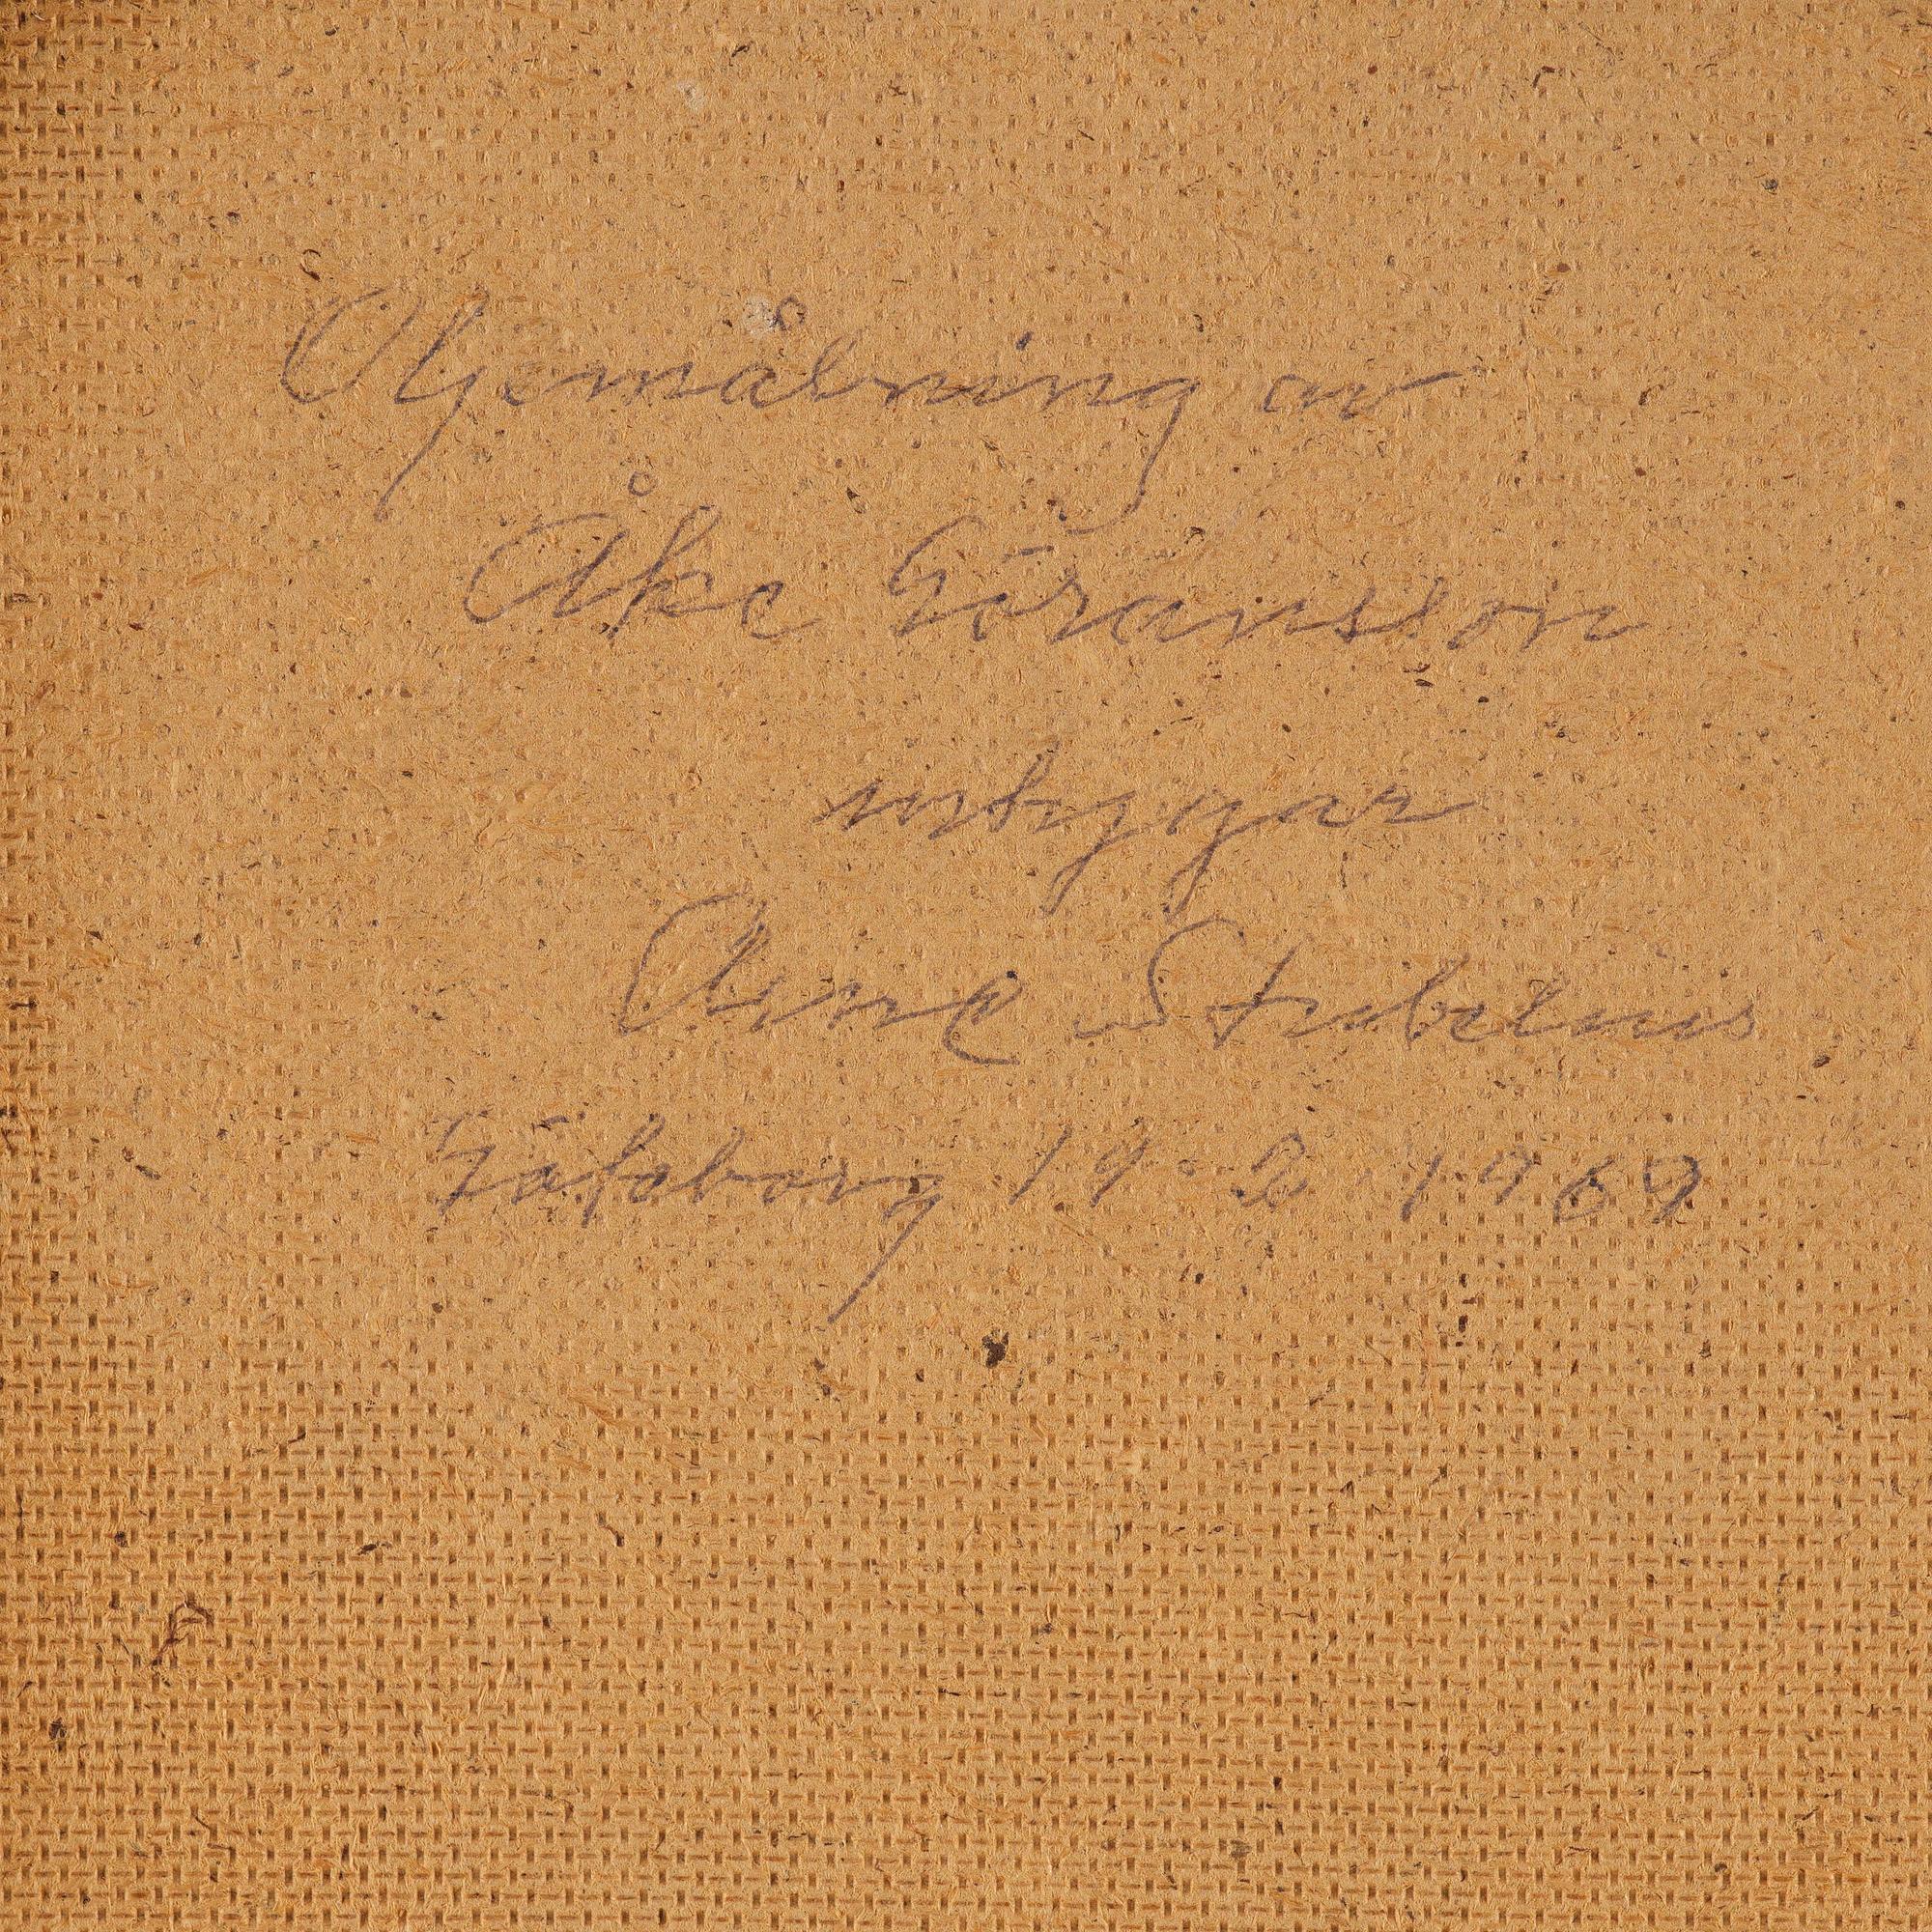 Oljemålning av
Åke Göransson
intygar
Arne Stubelius
Göteborg 19-2-1969